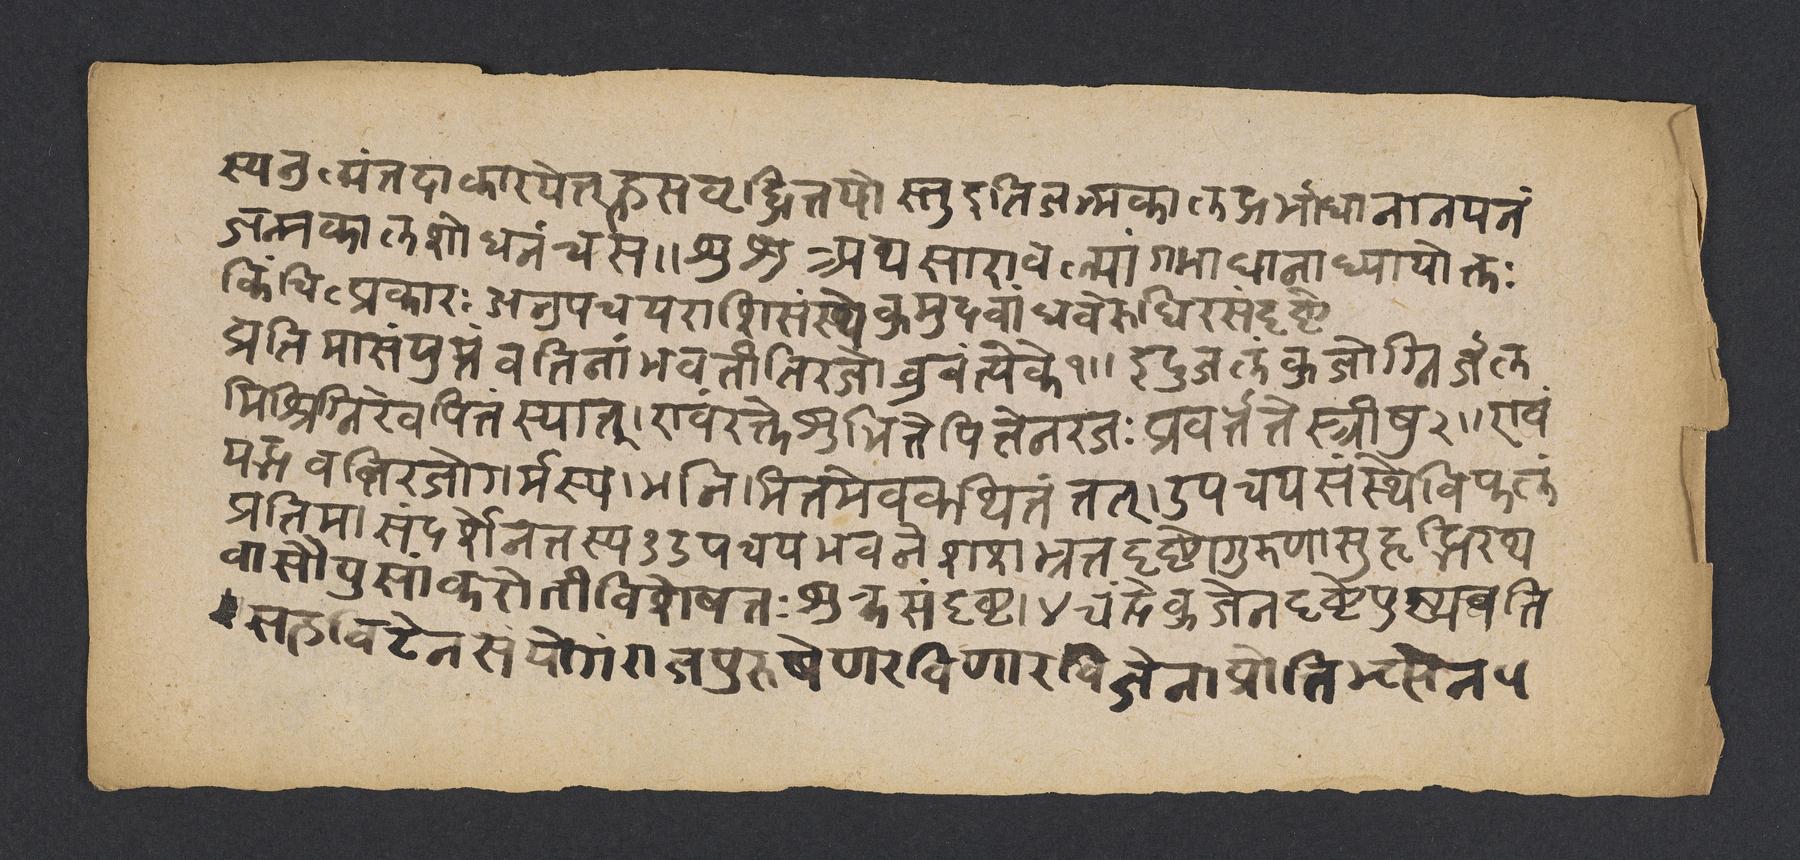 स्यनुम्पंतदाकारयेत्तह्रासवृद्धितयो स्तुइतिजन्मकालप्रर्माधानानयनं
जन्मकालशोधनंचस॥शुभअथसारावल्यांगर्माधानाध्यायोक्तः
किंचित्प्रकारः अनुपचयराशिसंस्थेकुमुदबांधवेरुधिरसंदृष्टे
प्रतिमासंपुष्पंवतिनांभवतीतिरजोब्रुवंत्येके१॥इंदुजलंकुजोग्निर्जल
मिश्रिग्निरेवपित्तंस्यात्।रावंरक्तेक्षुभितेपित्तेनरजःप्रवर्त्ततेस्त्रीषु२॥रावं
यद्भवतिरजोगर्भस्य।मनि।मित्तमेवकथितंतत्।उपचयसंस्थेविफलं
प्रतिमा।संदर्शनेतस्य३उपचयभवनेशशभृतदृष्टोगुरुणासुहृद्भिरथ
वासौपुसांकरोतीविशेषतःशुक्रसंदृष्ट।४चंद्रेकुजेनदृष्टेपुष्पवति
सहविटेनसंयोगंराजपुरुषेणरविणारविजेनाप्नोतिभृत्येन५